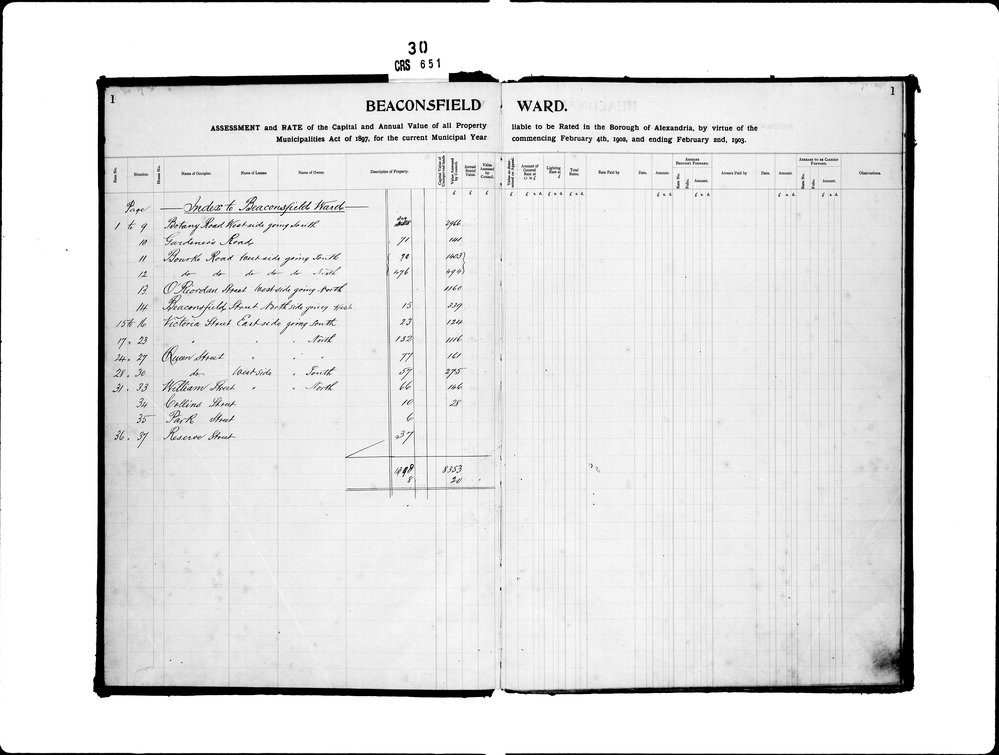 30
CRS 651
1
1
BEACONSFIELD WARD.
ASSESSMENT and RATE of the Capital and Annual Value of all Property liable to be Rated in the Borough of Alexandria, by virtue of the
Municipalities Act of 1897, for the current Municipal Year commencing February 4th, 1902, and ending February 2nd, 1903.
Rate No. Situation. House No. Name of Occupier. Name of Lessee. Name of Owner. Description of Property. Capital Value of Unimproved Land. Value Assessed by Council. Annual Rental Value. Value Assessed by Council. Amount of General Rate at Lighting Rate at Total Rates. Rate Paid by Date. Amount. ARREARS BROUGHT FORWARD. Rate No. Folio. Amount. Arrears Paid by Date. Amount. ARREARS TO BE CARRIED FORWARD. Rate No. Folio. Amount. Observations.
£ £ £ £ £ s d £ s d £ s d £ s d £ s d £ s d £ s d
Page Index to Beaconsfield Ward
1 to 9 Botany Road West side going South 2966
10 Gardener's Road 71 141
11 Bourke Road West side going South 90 1403
12 do do do do do North 476 494
13 O'Riordan Street West side going North 1160
14 Beaconsfield Street North side going West 15 339
15 to 16 Victoria Street East side going South 23 124
17 " 23 " " " North 132 1116
24 " 27 Queen Street " " " 77 161
28 " 30 do West side " South 57 275
31 " 33 William Street " " North 66 146
34 Collins Street 10 28
35 Park Street 6
36 " 37 Reserve Street 37
8353
8 20